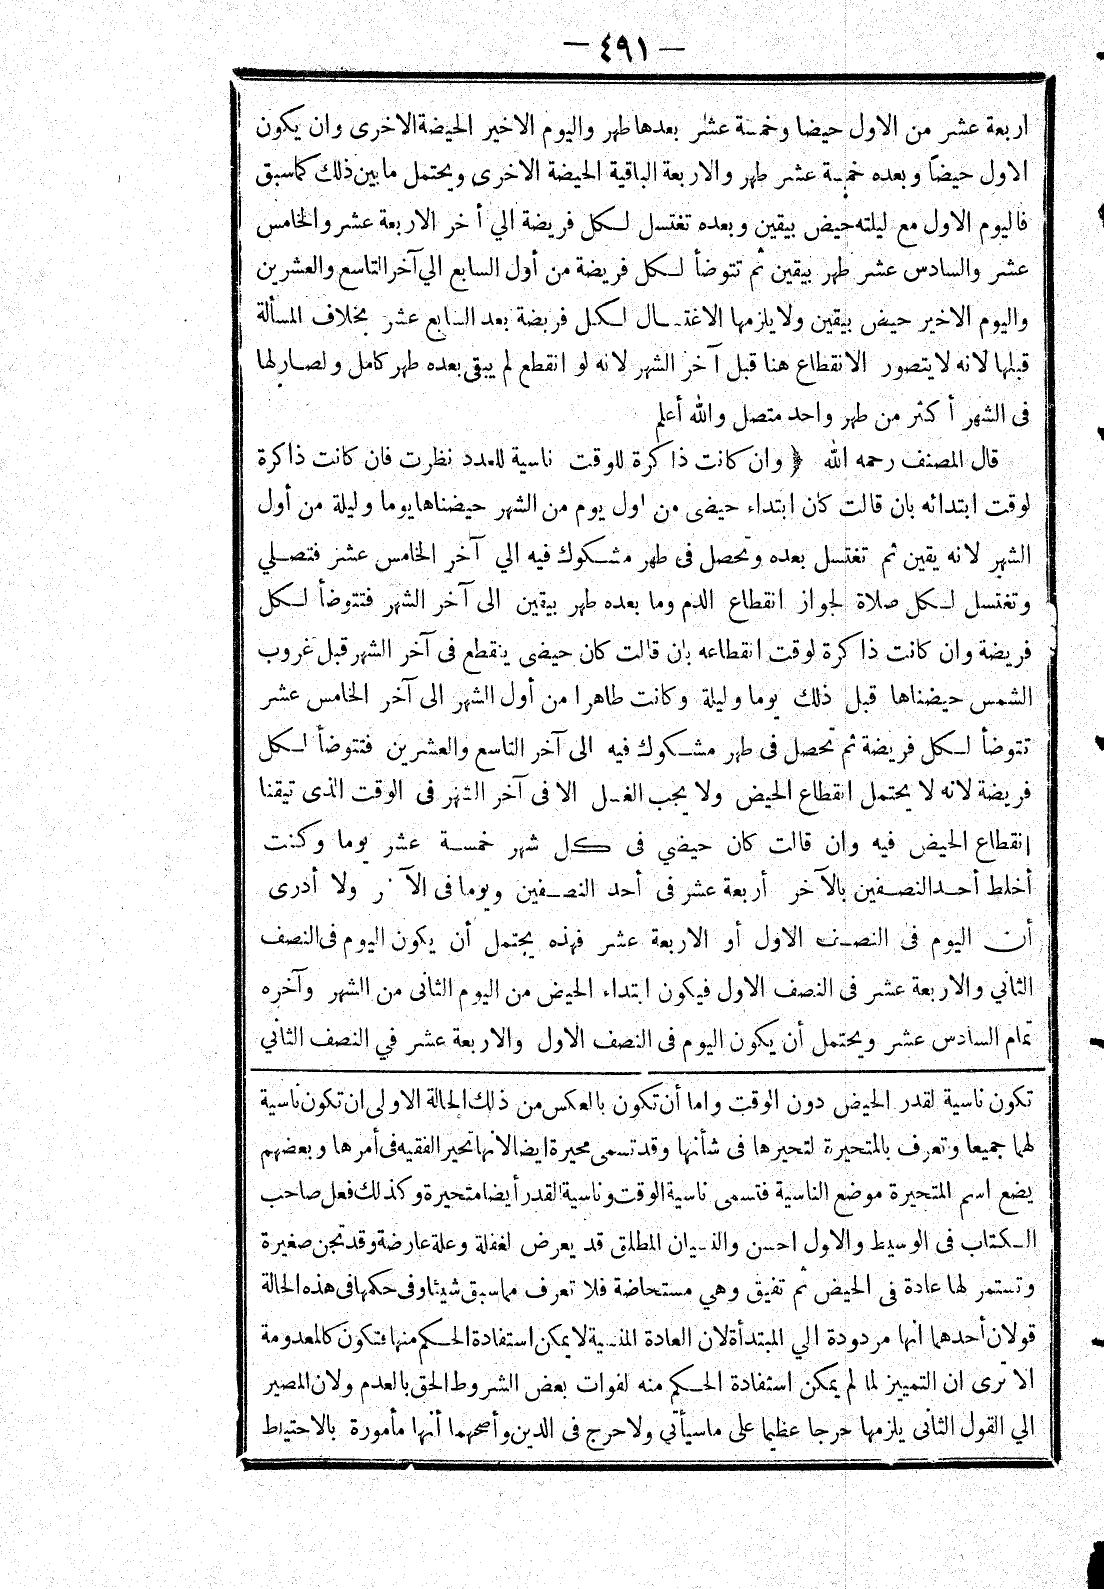 — ٤٩١ —
اربعة عشر من الاول حيضا وخمسة عشر بعدها طهر واليوم الاخير الحيضة الاخرى وان يكون
الاول حيضاً وبعده خمسة عشر طهر والاربعة الباقية الحيضة الاخرى ويحتمل ما بين ذلك كما سبق
فاليوم الاول مع ليلته حيض بيقين وبعده تغتسل لكل فريضة الي أخر الاربعة عشر والخامس
عشر والسادس عشر طهر بيقين ثم تتوضأ لكل فريضة من أول السابع الي آخر التاسع والعشرين
واليوم الاخير حيض بيقين ولا يلزمها الاغتسال لكل فريضة بعد السابع عشر بخلاف المسألة
قبلها لانه لا يتصور الانقطاع هنا قبل آخر الشهر لانه لو انقطع لم يبقى بعده طهر كامل ولصار لها
فى الشهر أكثر من طهر واحد متصل والله أعلم
قال المصنف رحمه الله ﴿ وان كانت ذاكرة للوقت ناسية للعدد نظرت فان كانت ذاكرة
لوقت ابتدائه بان قالت كان ابتداء حيضى من اول يوم من الشهر حيضناها يوما وليلة من أول
الشهر لانه يقين ثم تغتسل بعده وتحصل فى طهر مشكوك فيه الي آخر الخامس عشر فتصلي
وتغتسل لكل صلاة لجواز انقطاع الدم وما بعده طهر بيقين الى آخر الشهر فتتوضأ لكل
فريضة وان كانت ذاكرة لوقت انقطاعه بان قالت كان حيضى ينقطع فى آخر الشهر قبل غروب
الشمس حيضناها قبل ذلك يوما وليلة وكانت طاهرا من أول الشهر الى آخر الخامس عشر
تتوضأ لكل فريضة ثم تحصل فى طهر مشكوك فيه الى آخر التاسع والعشرين فتتوضأ لكل
فريضة لانه لا يحتمل انقطاع الحيض ولا يجب الغسل الا فى آخر الشهر فى الوقت الذى تيقنا
انقطاع الحيض فيه وان قالت كان حيضي فى كل شهر خمسة عشر يوما وكنت
أخلط أحد النصفين بالآخر أربعة عشر فى أحد النصفين ويوما فى الآخر ولا أدرى
أن اليوم فى النصف الاول أو الاربعة عشر فهذه يحتمل أن يكون اليوم فى النصف
الثاني والاربعة عشر فى النصف الاول فيكون ابتداء الحيض من اليوم الثانى من الشهر وآخره
تمام السادس عشر ويحتمل أن يكون اليوم فى النصف الاول والاربعة عشر في النصف الثاني
تكون ناسية لقدر الحيض دون الوقت واما أن تكون بالعكس من ذلك الحالة الاولى ان تكون ناسية
لهما جميعا وتعرف بالمتحيرة لتحيرها فى شأنها وقد تسمى محيرة ايضا لانها تحير الفقيه فى أمرها وبعضهم
يضع اسم المتحيرة موضع الناسية فتسمى ناسية الوقت وناسية القدر أيضا متحيرة وكذلك فعل صاحب
الكتاب فى الوسيط والاول احسن والنسيان المطلق قد يعرض لغفلة وعلة عارضة وقد تجن صغيرة
وتستمر لها عادة فى الحيض ثم تفيق وهي مستحاضة فلا تعرف مما سبق شيئا وفى حكمها فى هذه الحالة
قولان أحدهما انها مردودة الي المبتدأة لان العادة المنسية لا يمكن استفادة الحكم منها فتكون كالمعدومة
الا ترى ان التمييز لما لم يمكن استفادة الحكم منه لفوات بعض الشروط الحق بالعدم ولان المصير
الي القول الثانى يلزمها حرجا عظيما على ما سيأتي ولا حرج فى الدين وأصحهما أنها مأمورة بالاحتياط